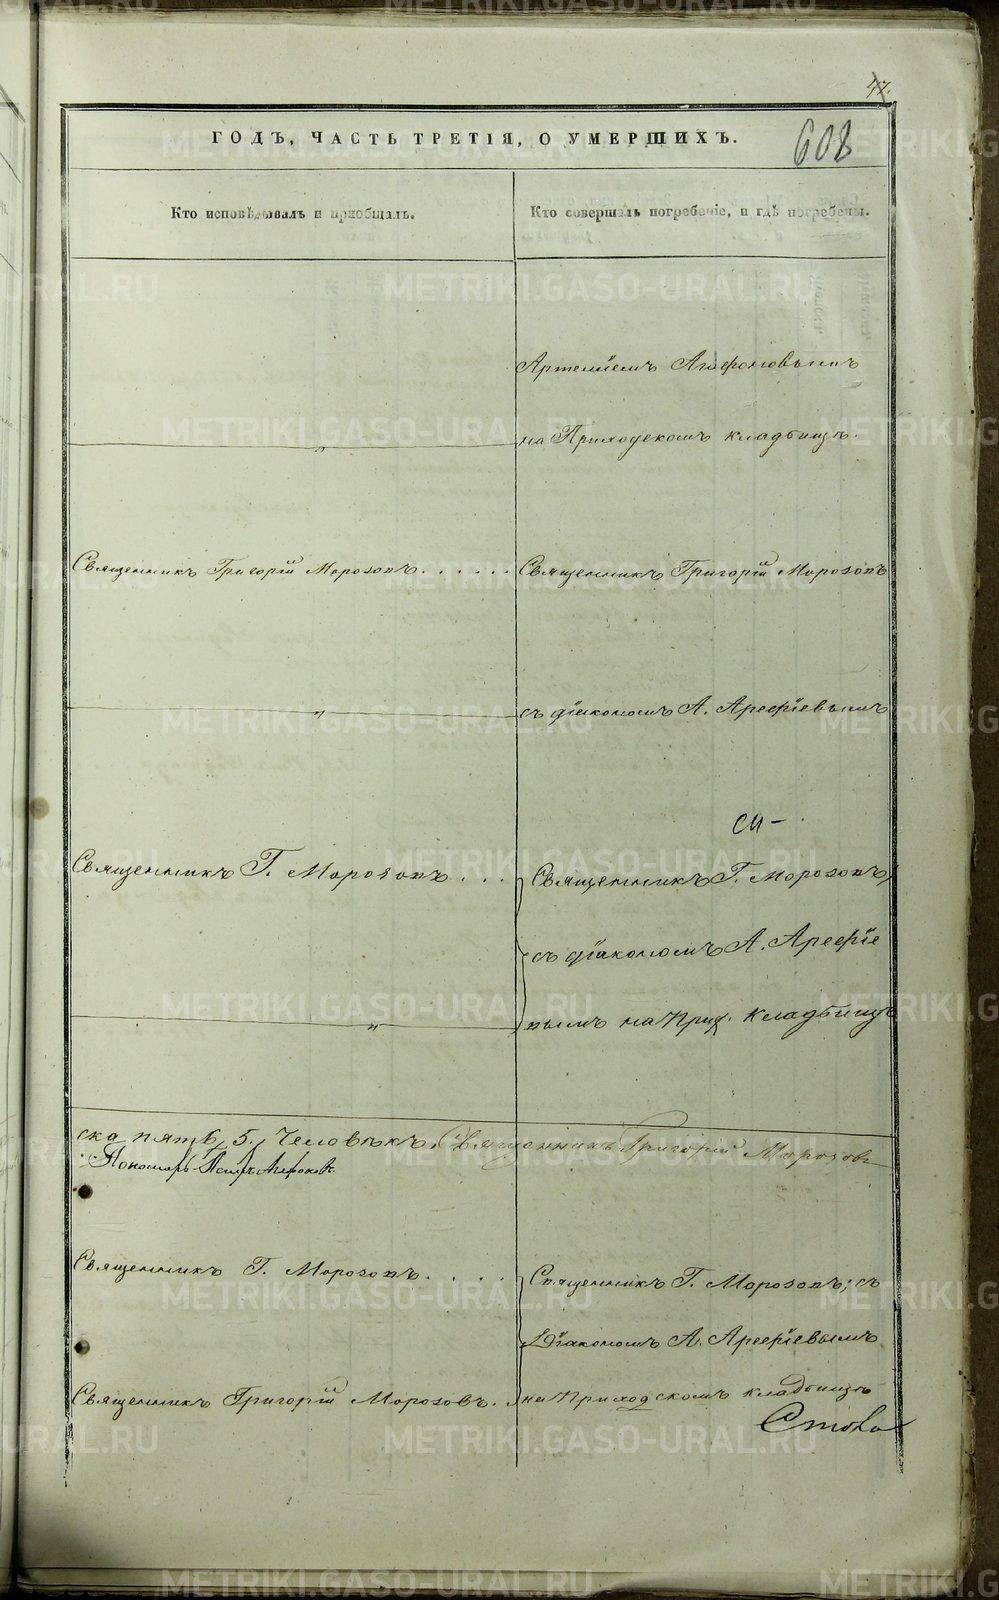 47.
ГОДЪ, ЧАСТЬ ТРЕТІЯ, О УМЕРШИХЪ.
608
Кто исповѣдывалъ и приобщалъ.
Кто совершалъ погребеніе, и гдѣ погребены.
Артеміемъ Агафоновымъ
на Приходскомъ кладбищѣ.
"
Священникъ Григорій Морозовъ......
Священникъ Григорій Морозовъ
"
съ діакономъ А. Арефіевымъ
Священникъ Г. Морозовъ...
Священникъ Г. Морозовъ,
съ діакономъ А. Арефіе
вымъ на Прих. кладбищѣ
"
ска пять, 5, человѣкъ. Священникъ Григорій Морозовъ
Пономарь
Священникъ Г. Морозовъ....
Священникъ Г. Морозовъ; съ
Діакономъ А. Арефіевымъ
Священникъ Григорій Морозовъ.
на Приходскомъ кладбищѣ
METRIKI.GASO-URAL.RU